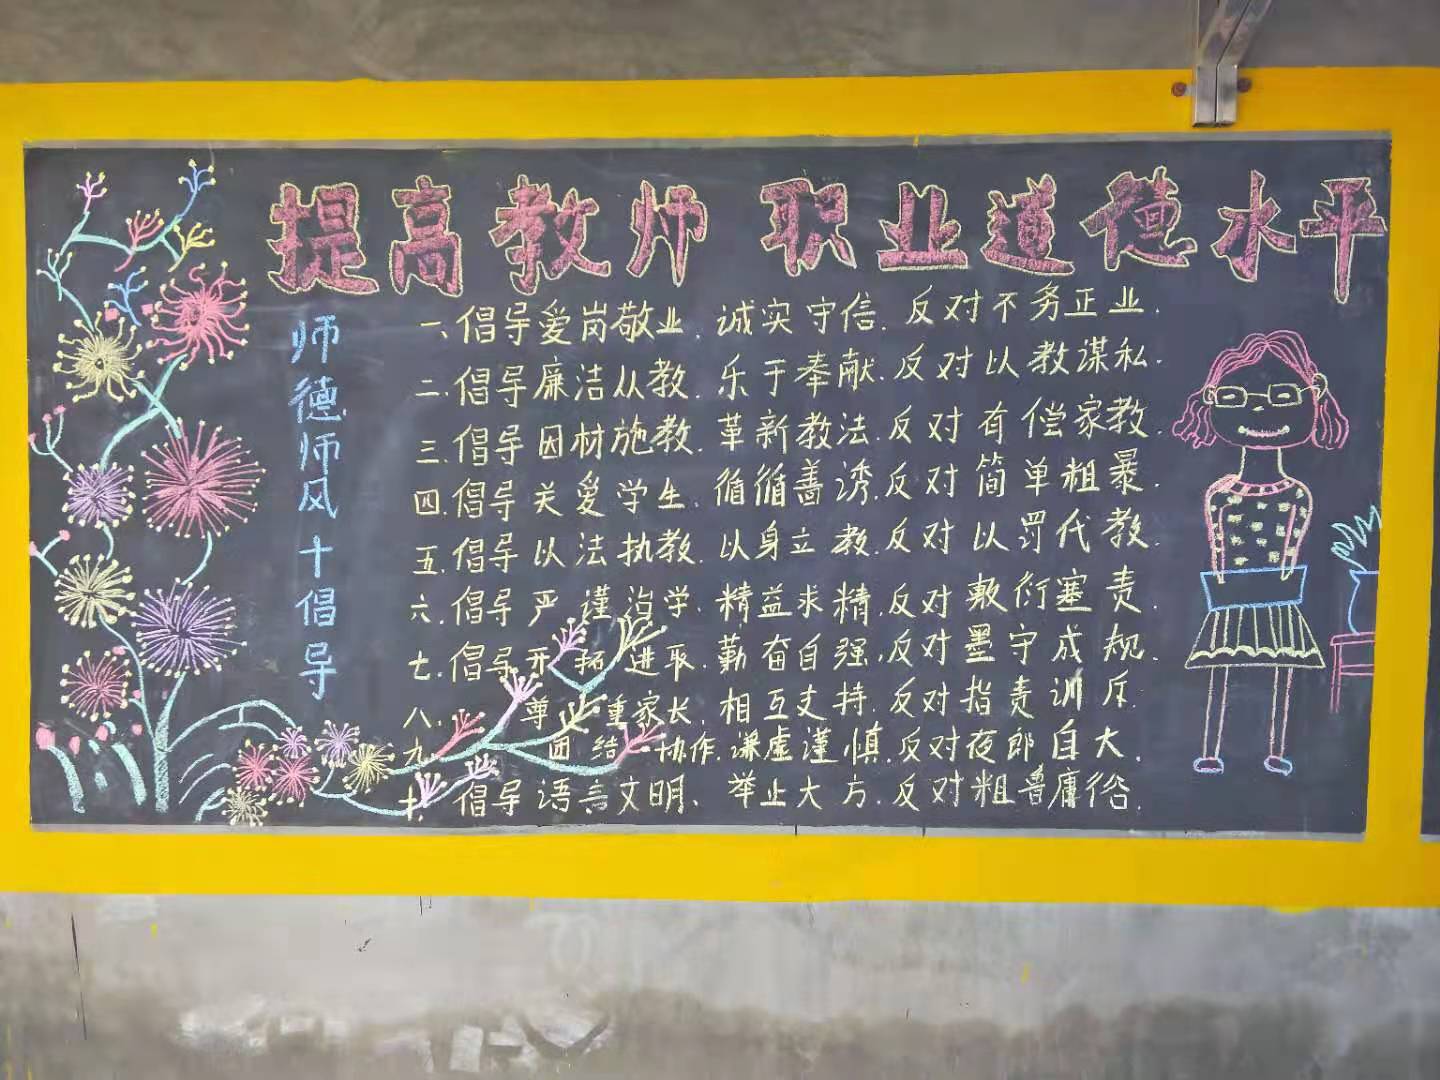 提高教师 职业道德水平
师德师风十倡导
一、倡导爱岗敬业、诚实守信、反对不务正业.
二、倡导廉洁从教、乐于奉献、反对以教谋私.
三、倡导因材施教、革新教法、反对有偿家教.
四、倡导关爱学生、循循善诱、反对简单粗暴.
五、倡导以法执教、以身立教、反对以罚代教.
六、倡导严谨治学、精益求精、反对敷衍塞责.
七、倡导开拓进取、勤奋自强、反对墨守成规.
八、尊重家长、相互支持、反对指责训斥.
九、团结协作、谦虚谨慎、反对夜郎自大、
十、倡导语言文明、举止大方、反对粗鲁庸俗.